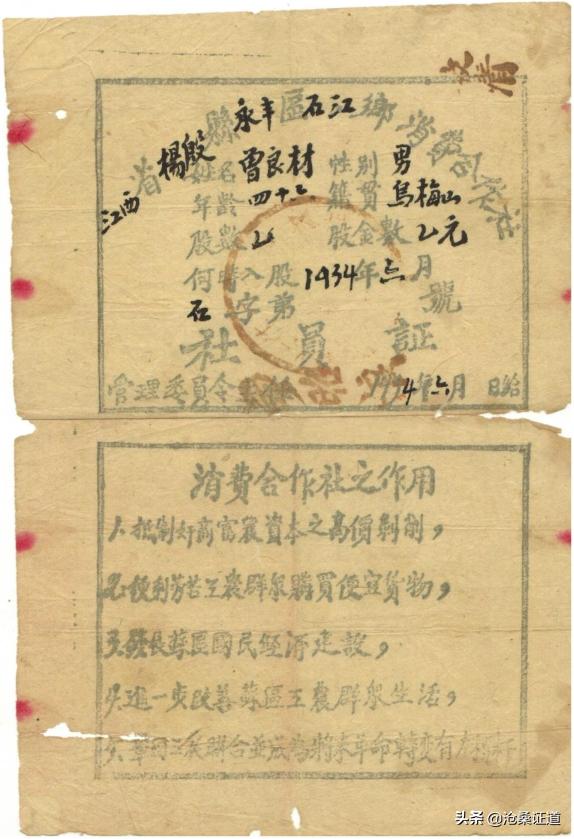 江西省楊殷縣永丰區石江鄉消費合作社
姓名 曾良材 性別 男
年齡 四十六 籍貫 烏梅山
股數 乙 股金數 乙元
何時入股 1934年六月
石字第 號
社員証
管理委員会主任 1934年六月 日給
消費合作社之作用
1、抵制奸商富農資本之高價剝削，
2、便利劳苦工農群眾購買便宜貨物，
3、發長蘇區國民經濟建設，
4、進一步改善蘇區工農群眾生活，
5、鞏固工農聯合並成為將來革命轉變有力
头条 @沧桑证道